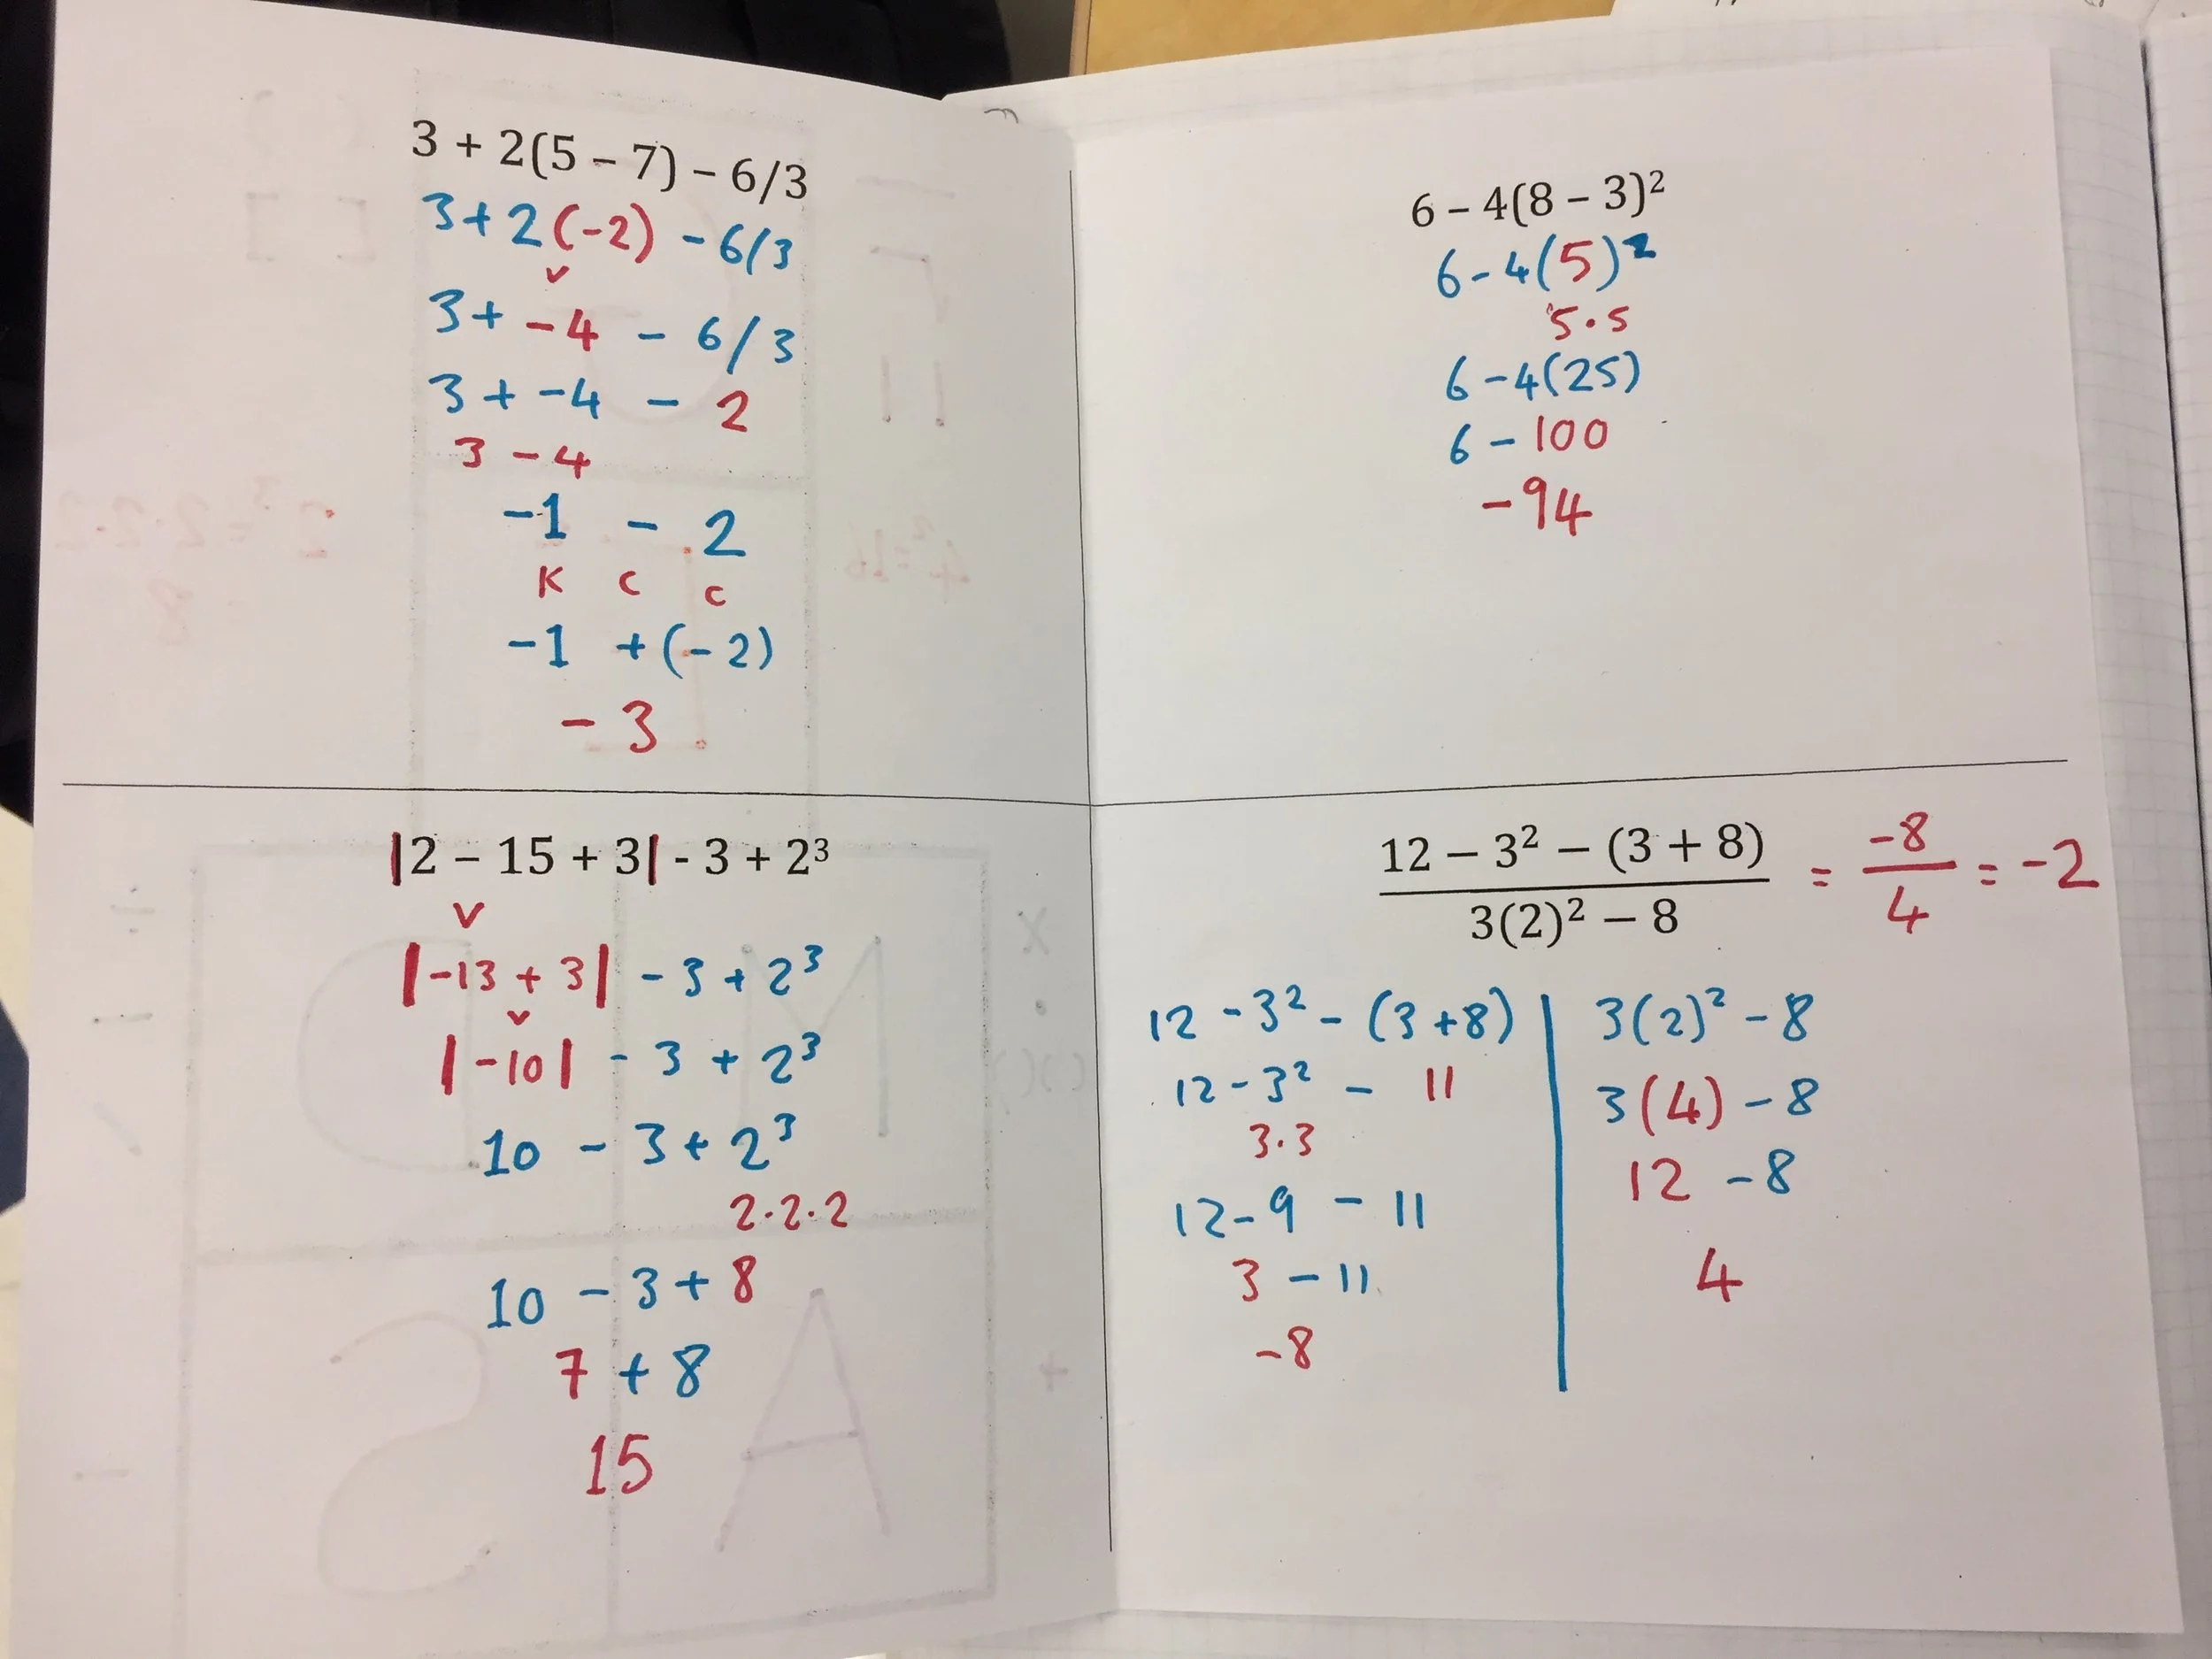 3 + 2(5 – 7) – 6/3
3 + 2 (-2) - 6/3
3 + -4 - 6/3
3 + -4 - 2
3 - 4
-1 - 2
K C C
-1 + (-2)
-3
6 – 4(8 – 3)²
6 - 4(5)²
5·5
6 - 4(25)
6 - 100
-94
|2 – 15 + 3| - 3 + 2³
|-13 + 3| - 3 + 2³
|-10| - 3 + 2³
10 - 3 + 2³
2·2·2
10 - 3 + 8
7 + 8
15
12 – 3² – (3 + 8)
3(2)² – 8
= -8/4 = -2
12 - 3² - (3 + 8)
12 - 3² - 11
3·3
12 - 9 - 11
3 - 11
-8
3(2)² - 8
3(4) - 8
12 - 8
4